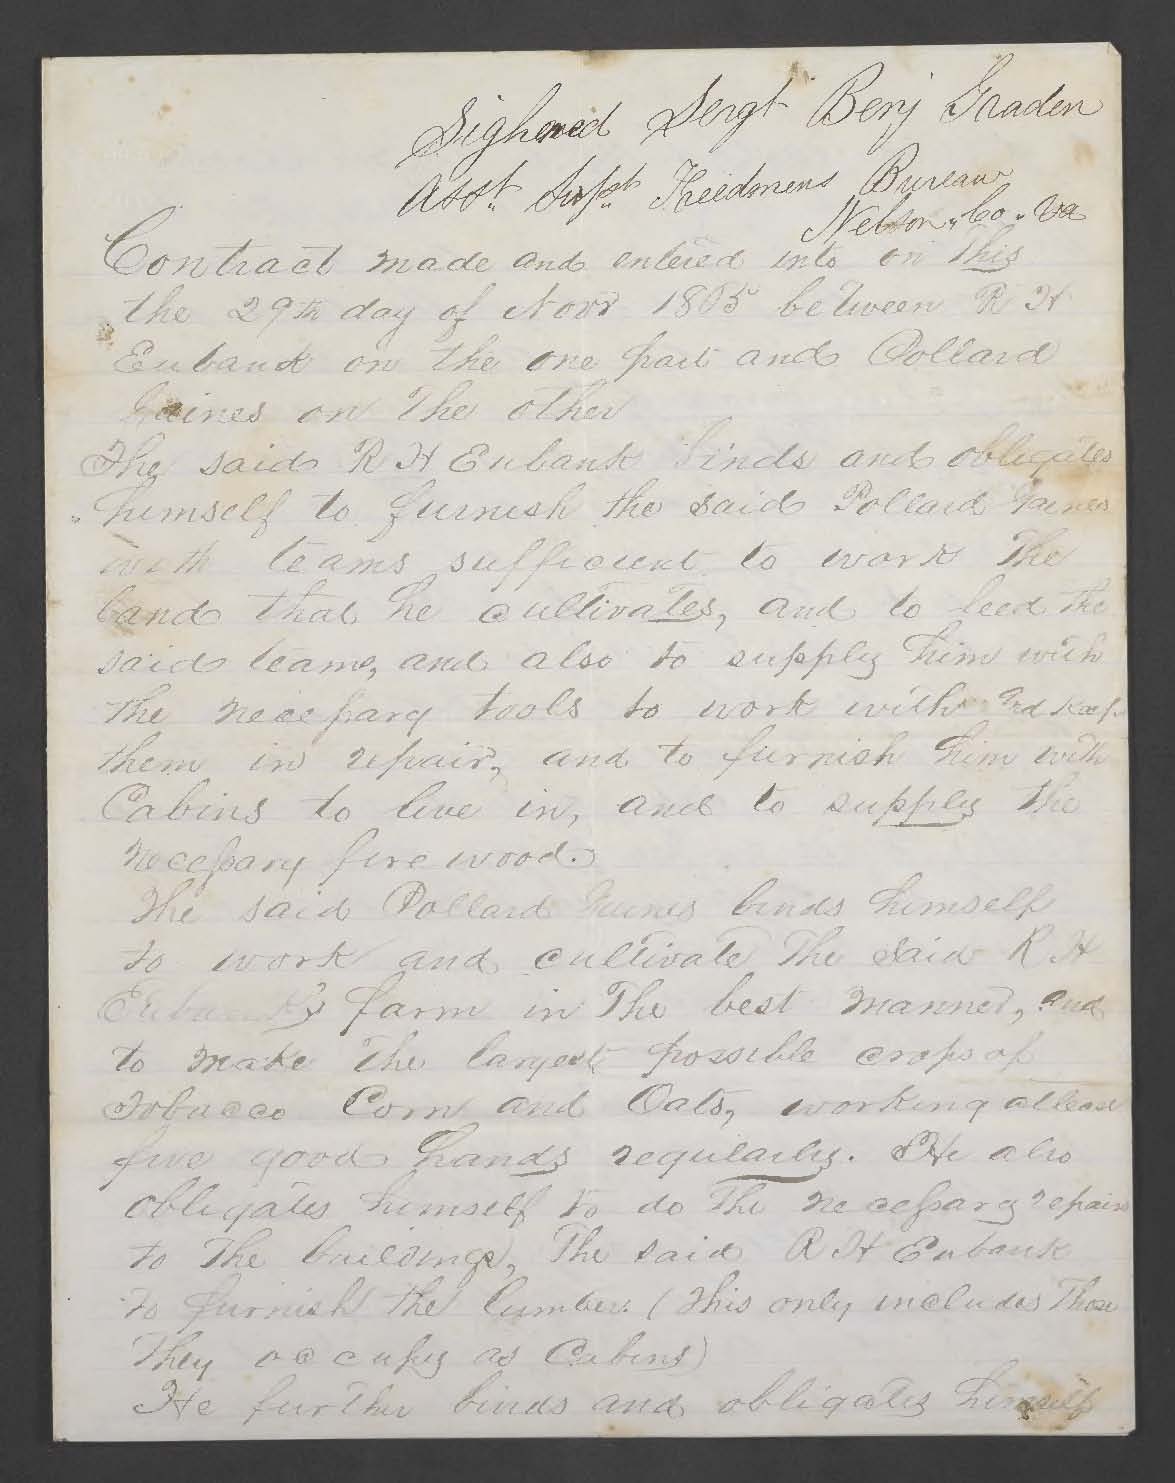 Sighened Sergt Benj Graden
Asst. Supst Freedmens Bureau
Nelson Co Va
Contract made and entered into on this
the 29th day of Novr 1865 between R H
Eubank on the one part and Pollard
Gaines on the other
The said R H Eubank binds and obligates
himself to furnish the said Pollard Gaines
with teams sufficient to work the
land that he cultivates, and to feed the
said teams, and also to supply him with
the necessary tools to work with and keep
them in repair, and to furnish him with
Cabins to live in, and to supply the
necessary fire wood.
The said Pollard Gaines binds himself
to work and cultivate the said R H
Eubank's farm in the best manner, and
to make the largest possible crops of
Tobacco Corn and Oats, working at least
five good hands regularly. He also
obligates himself to do the necessary repairs
to the buildings, The said R H Eubank
to furnish the lumber. (This only includes Those
They occupy as Cabins)
He further binds and obligates himself